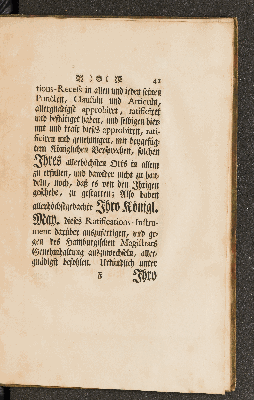 41
tions-Recess in allen und jeden seinen
Puncten, Clausuln und Articuln,
allergnädigst approbiret, ratificiret
und bestätiget haben, und selbigen hier-
mit und kraft dieses approbiren, rati-
ficiren und genehmigen, mit beygefüg-
tem Königlichen Versprechen, solchen
Ihres allerhöchsten Orts in allem
zu erfüllen, und darwider nicht zu han-
deln, noch, daß es von den Ihrigen
geschehe, zu gestatten; Also haben
allerhöchstgedachte Ihro Königl.
May. dieses Ratifications-Instru-
ment darüber auszufertigen, und ge-
gen des Hamburgischen Magistrats
Genehmhaltung auszuwechseln, aller-
gnädigst befohlen. Uhrkundlich unter
F Ihro